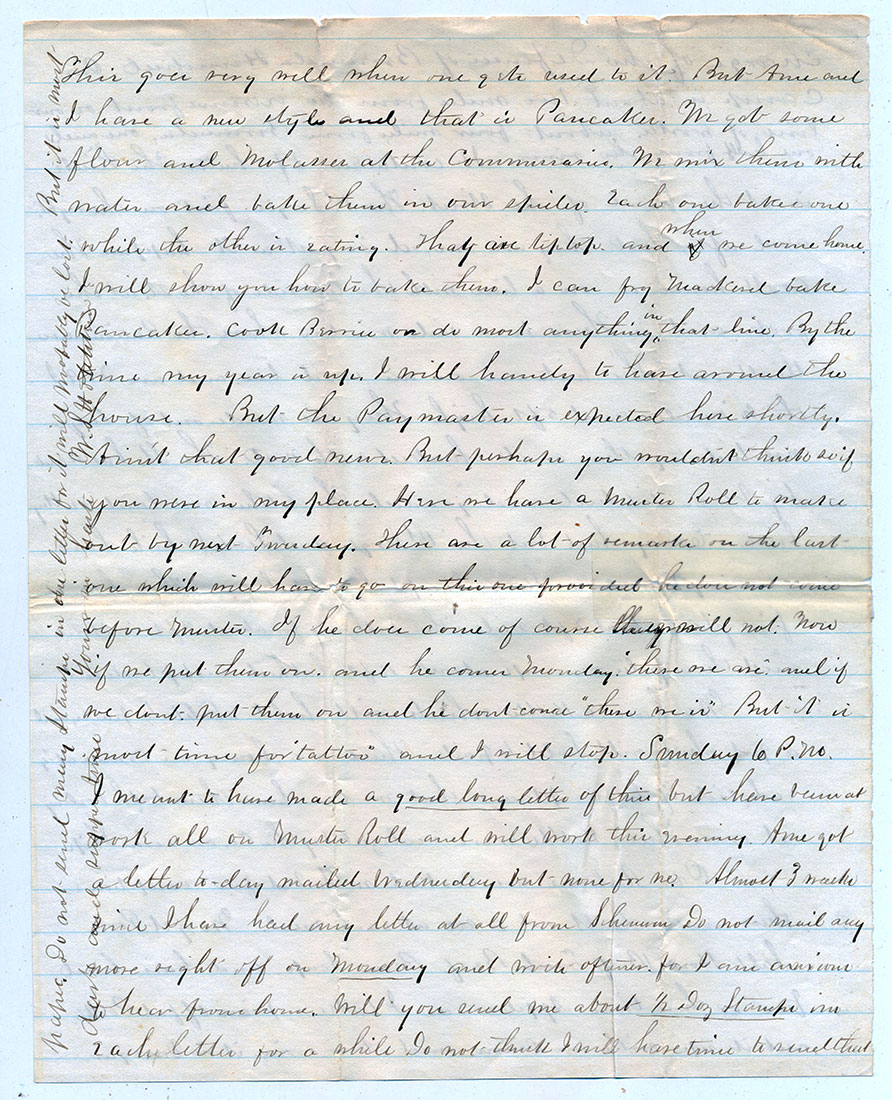 This goes very well when one gets used to it But Ame and
I have a new style and that is Pancakes. We got some
flour and Molasses at the Commissaries. We mix them with
water and bake them in our spider. Each one bakes one
while the other is eating. They are tip top. and when we come home.
I will show you how to bake them. I can fry Mackerel bake
Pancakes. Cook Berries or do most anything in that line. By the
time my year is up. I will handy to have around the
house. But the Paymaster is expected here shortly.
Ain't that good news. But perhaps you wouldn't think so if
you were in my place. Here we have a Muster Roll to make
out by next Tuesday. There are a lot of remarks on the last
one which will have to go on this one provided he does not come
before Muster. If he does come of course they will not. Now
if we put them on. and he comes Monday. "there we are". and if
we dont. put them on and he dont come "there we is" But it is
most time for "tattoo" and I will stop. Sunday 6 P.M.
I meant to have made a good long letter of this but have been at
work all on Muster Roll and will work this evening. Ame got
a letter to-day mailed Wednesday but none for me. Almost 3 weeks
since I have had any letter at all from Do not mail any
more right off on Monday and write oftener. for I am anxious
to hear from home. Will you send me about 1/2 Doz Stamps in
each letter for a while Do not think I will have time to send that
paper. Do not send many Stamps in one letter for it will probably be lost. But it is most
dark and supper time Yours in haste W.